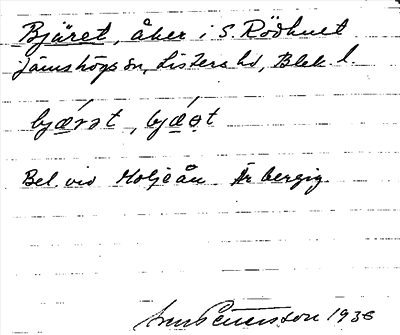 Bjäret, åker i S. Rödhult
Jämshögs sn, Listers hd, Blek. l.
bjæ̀rət, bjæ̀ət
Bel. vid Holjeån. Är bergig.
Pettersson 1936